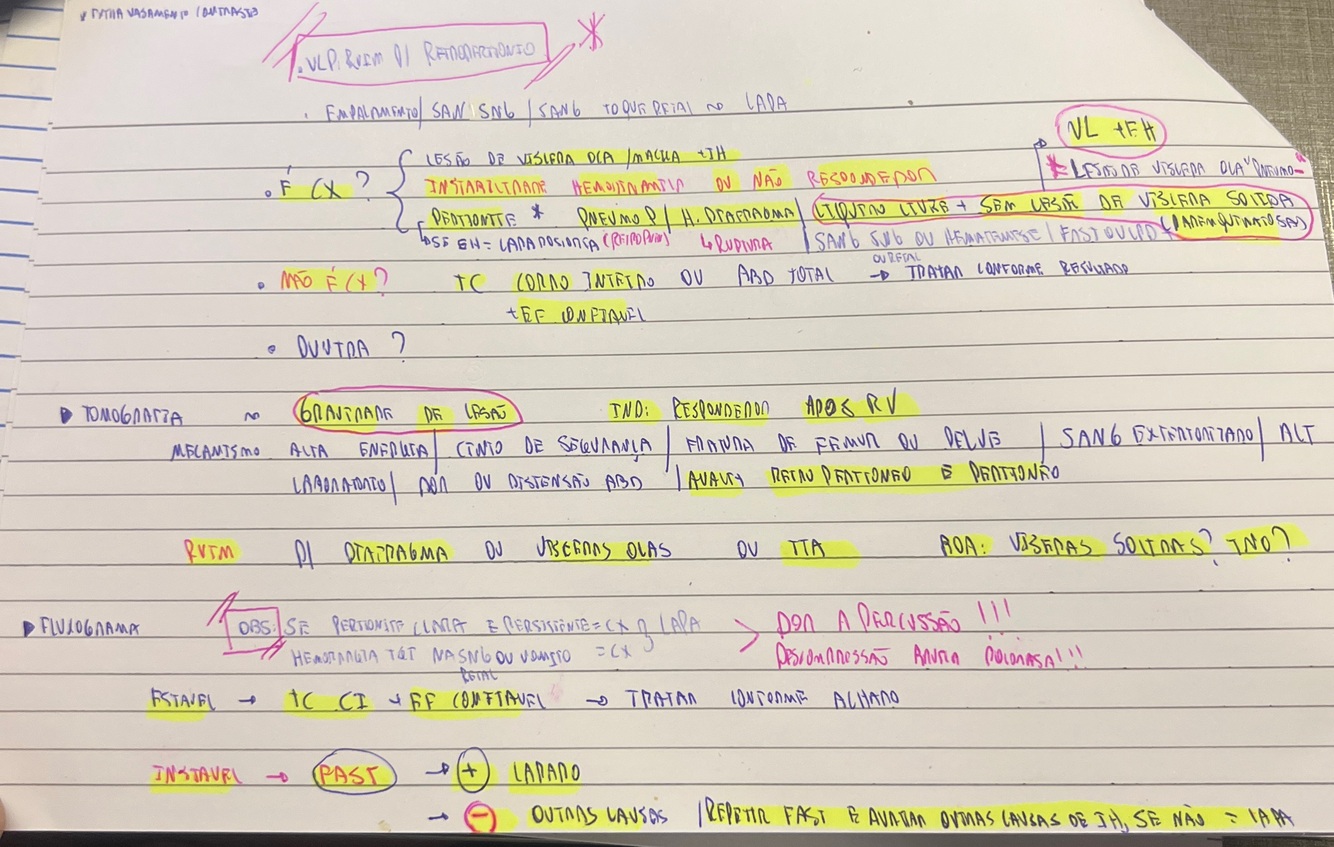 EXTRAVASAMENTO CONTRASTE
. VLP: RUIM P/ RETROPERITONIO *
. EMPALAMENTO / SAN SNG / SANG TOQUE RETAL ~ LAPA
VL + EH
. É CX? LESÃO DE VISCERA OCA / MACIÇA + IH
* LESÃO DE VISCERA OCA "PNEUMO-
INSTABILIDADE HEMODINAMICA OU NÃO RESPONDEDOR
PERITONITE * PNEUMO P / H. DIAFRAGMA / LIQUIDO LIVRE + SEM LESÃO DE VISCERA SOLIDA
↳ SE EH = LAPAROSCOPICA (RETROPERI) ↳ RUPTURA / SANG SNG OU HEMATEMESE / FAST OU LPD + (PARENQUIMATOSA)
OU RETAL
. NÃO É CX? TC CORPO INTEIRO OU ABD TOTAL → TRATAR CONFORME RESULTADO
+ EF CONFIAVEL
. DUVIDA ?
▶ TOMOGRAFIA ~ GRAVIDADE DE LESÃO IND: RESPONDEDOR APOS RV
MECANISMO ALTA ENERGIA / CINTO DE SEGURANÇA / FRATURA DE FEMUR OU PELVE / SANG EXTERIORIZADO / ALT
LABORATORIO / DOR OU DISTENSÃO ABD / AVALIA RETROPERITONEO E PERITONEO
RUIM P/ DIAFRAGMA OU VISCERAS OCAS OU ITA BOA: VISCERAS SOLIDAS? IND?
▶ FLUXOGRAMA OBS: SE PERITONITE CLARA E PERSISTENTE = CX LAPA > DOR A PERCUSSÃO !!!
HEMORRAGIA TGI NA SNG OU VOMITO = CX DESCOMPRESSÃO BRUSCA DOLOROSA!!!
RETAL
ESTAVEL → TC CI + EF CONFIAVEL → TRATAR CONFORME ACHADO
INSTAVEL → FAST → + LAPARO
→ - OUTRAS CAUSAS / REPETIR FAST E AVALIAR OUTRAS CAUSAS DE IH, SE NÃO = LAPA